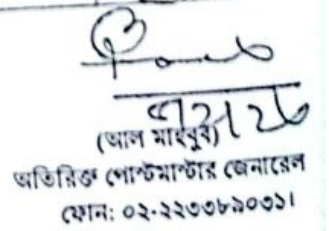 (আল মাহবুব)
অতিরিক্ত পোস্টমাস্টার জেনারেল
ফোন: ০২-২২৩৩৮৯০৩১।